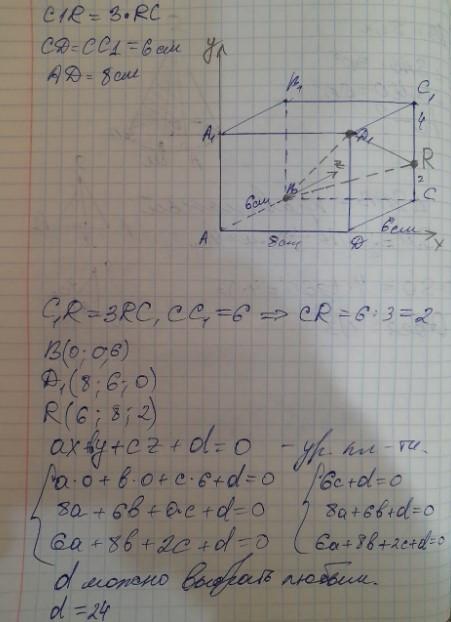 C1R = 3·RC
CD = CC1 = 6 см
AD = 8 см
y
B1
C1
A1
D1
4
R
z
2
6см
B
C
A
8см
D
6см
x
C1R = 3RC, CC1 = 6 => CR = 6:3 = 2
B(0; 0; 6)
D1(8; 6; 0)
R(6; 8; 2)
ax+by+cz+d=0 - ур. пл-ти.
a·0+b·0+c·6+d=0
6c+d=0
8a+6b+0c+d=0
8a+6b+d=0
6a+8b+2c+d=0
6a+8b+2c+d=0
d можно выбрать любым.
d = 24